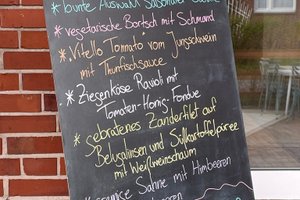 * bunte Auswahl Saisonaler Salate
* vegetarische Bortsch mit Schmand
* Vitello Tonnato vom Jungschwein
mit Thunfischsauce
* Ziegenkäse Ravioli mit
Tomaten-Honig-Fondue
* gebratenes Zanderfilet auf
Belugalinsen und Süßkartoffelpüree
mit Weißweinschaum
Sahne mit Himbeeren